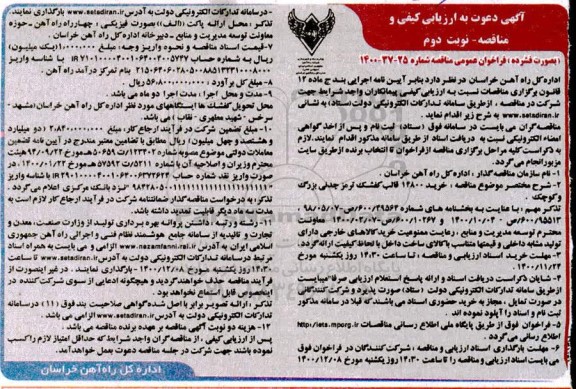 آگهی دعوت به ارزیابی کیفی و
مناقصه - نوبت دوم
(بصورت فشرده) فراخوان عمومی مناقصه شماره ۲۵-۳۷-۱۴۰۰
اداره کل راه آهن خراسان در نظر دارد بنابر آیین نامه اجرایی بند ج ماده ۱۲
قانون برگزاری مناقصات نسبت به ارزیابی کیفی پیمانکاران واجد شرایط جهت
شرکت در مناقصه ، از طریق سامانه تدارکات الکترونیکی دولت (ستاد) به نشانی
www.setadiran.ir به شرح زیر اقدام نماید.
مناقصه گران می بایست در سامانه فوق (ستاد) ثبت نام و پس از اخذ گواهی
امضاء الکترونیکی نسبت به دریافت اسناد از طریق سامانه مذکور اقدام نمایند. لازم
به ذکر است کلیه مراحل برگزاری مناقصه از فراخوان تا انتخاب برنده از طریق سایت
مزبور انجام می گردد.
۱- نام سازمان مناقصه گذار : اداره کل راه آهن خراسان .
۲- شرح مختصر موضوع مناقصه : خرید ۱۲۸۰۰ قالب کفشک ترمز چدنی بزرگ
و کوچک .
تذکر مهم : با عنایت به بخشنامه های شماره ۶۰/۳۹۵۶۲/ص مورخ ۹۸/۰۵/۰۷
معاونت محترم توسعه مدیریت و منابع ، رعایت ممنوعیت خرید کالاهای خارجی دارای
تولید مشابه داخلی و قیمتها متناسب با کالای ساخت داخل با لحاظ کیفیت ارائه گردد.
۳- مهلت خرید اسناد ارزیابی و مناقصه : تا ساعت ۱۴:۳۰ روز یکشنبه مورخ
۱۴۰۰/۱۱/۲۴
۴- شایان ذکر است دریافت اسناد و ارائه پاسخ استعلام ارزیابی صرفا می بایست
از طریق سامانه تدارکات الکترونیکی دولت (ستاد) صورت پذیرد و شرکت کنندگانی
در صورت تمایل ، مجاز به خرید حضوری اسناد می باشند که قبلا در سامانه مذکور
ثبت نام و اسناد را آپلود نموده اند .
۵- فراخوان فوق از طریق پایگاه ملی اطلاع رسانی مناقصات http://iets.mporg.ir
اطلاع رسانی می گردد .
۶- مهلت بارگذاری اسناد ارزیابی و مناقصه : شرکت کنندگان در فراخوان فوق
می بایست اسناد ارزیابی و مناقصه را تا ساعت ۱۴:۳۰ روز یکشنبه مورخ ۱۴۰۰/۱۲/۰۸
- در سامانه تدارکات الکترونیکی دولت به آدرس www.setadiran.ir بارگذاری نمایند.
تذکر : محل ارائه پاکت ((الف)) بصورت فیزیکی : چهارراه راه آهن - حوزه
معاونت توسعه مدیریت و منابع - دبیرخانه اداره کل راه آهن خراسان .
۷- قیمت اسناد مناقصه و نحوه واریز وجه: مبلغ ۱/۰۰۰/۰۰۰ (یک میلیون)
ریال به شماره حساب با شناسه واریز
بنام تمرکز درآمد راه آهن .
۸- مبلغ کل برآورد ریال می باشد.
۹- مدت و محل اجرا: مدت اجرا دو ماه می باشد.
محل تحویل کفشک ها ایستگاههای مورد نظر اداره کل راه آهن خراسان (مشهد -
سرخس - شهید مطهری - نقاب ) می باشد.
۱۰- مبلغ تضمین شرکت در فرآیند ارجاع کار، مبلغ ۲/۸۴۰/۰۰۰/۰۰۰ (دو میلیارد
و هشتصد و چهل میلیون) ریال مطابق با تضامین معتبر مندرج در آیین نامه تضمین
معاملات دولتی موضوع مصوبه شماره ۱۲۳۴۰۲/ت۵۰۶۵۹ه مورخ ۹۴/۰۹/۲۲ هیئت
محترم وزیران و اصلاحیه آن با شماره ۵۲۱۱/ت۵۷۵۹۲ه مورخ ۱۴۰۰/۰۱/۲۲ . در
صورت واریز نقد شماره حساب با شناسه واریز
نزد بانک مرکزی اعلام می گردد .
تذکر: به درخواست گذار ضمانتنامه شرکت در فرآیند ارجاع کار لازم است به
مدت سه ماه دیگر قابلیت تمدید داشته باشد.
۱۱- رشته و رتبه : داشتن پروانه بهره برداری تولید از وزارت صنعت، معدن و
تجارت و تائیدیه از سامانه جامع هوشمند نظام فنی و اجرائی راه آهن جمهوری
اسلامی ایران به آدرس www.nazamfanni.rai.ir الزامی و می بایست به همراه اسناد
مرتبط در سامانه تدارکات الکترونیکی دولت به آدرس www.setadiran.ir تا ساعت
۱۴:۳۰ روز یکشنبه مورخ ۱۴۰۰/۱۲/۰۸ - بارگذاری نمایند . در غیر اینصورت از
فرآیند مناقصه حذف خواهند گردید و هیچگونه ادعایی از سوی شرکت کننده در
اینخصوص قابل استماع نخواهد بود .
تذکر : ارائه تصویر برابر با اصل شده گواهی صلاحیت بند فوق (۱۱) در سامانه
تدارکات الکترونیکی دولت به آدرس www.setadiran.ir الزامی می باشد .
۱۲- هزینه دو نوبت آگهی مناقصه بر عهده برنده مناقصه می باشد .
پس از ارزیابی کیفی ، از مناقصه گران واجد شرایط که حداقل امتیاز لازم را کسب
نموده باشند جهت شرکت در جلسه مناقصه دعوت بعمل خواهد آمد.
اداره کل راه آهن خراسان